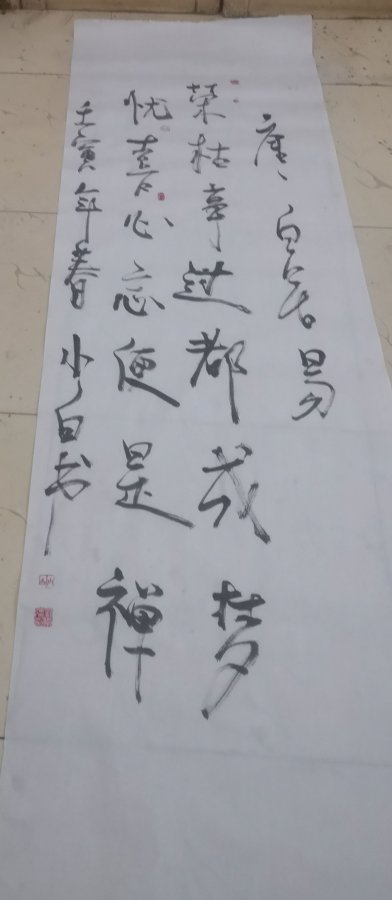 唐、白居易
荣枯事过都成梦
忧喜心忘便是禅
壬寅年春日小白书